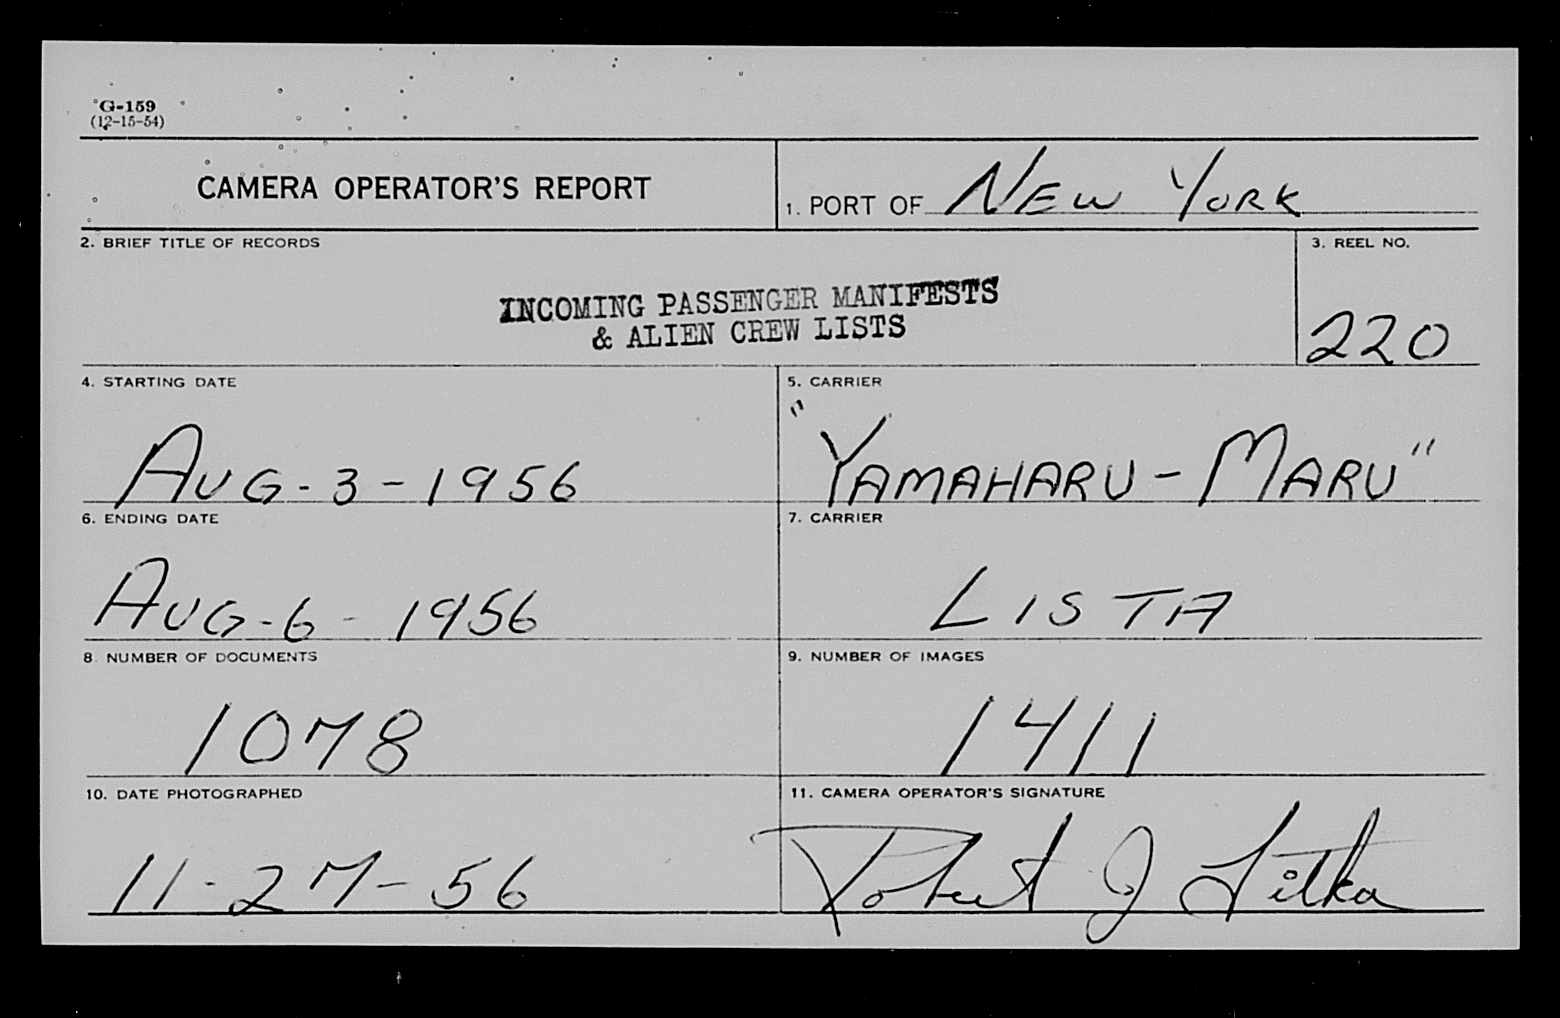 G-159
(12-15-54)
CAMERA OPERATOR'S REPORT
1. PORT OF NEW YORK
2. BRIEF TITLE OF RECORDS
INCOMING PASSENGER MANIFESTS
& ALIEN CREW LISTS
3. REEL NO.
220
4. STARTING DATE
AUG-3-1956
5. CARRIER
"YAMAHARU-MARU"
6. ENDING DATE
AUG-6-1956
7. CARRIER
LISTA
8. NUMBER OF DOCUMENTS
1078
9. NUMBER OF IMAGES
1411
10. DATE PHOTOGRAPHED
11-27-56
11. CAMERA OPERATOR'S SIGNATURE
Robert J